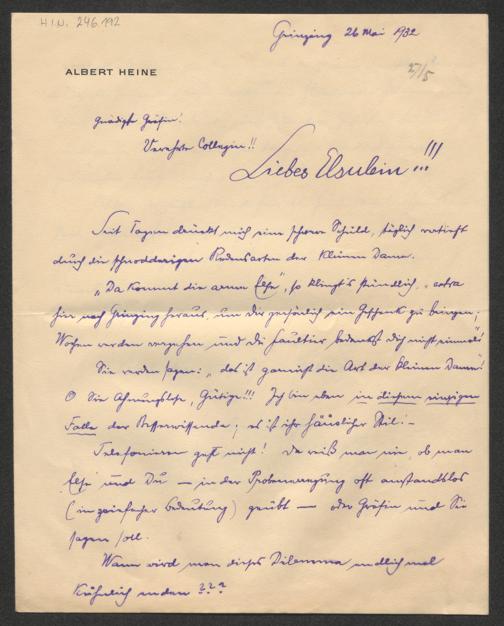 H.I.N. 246.192
Grinzing 26 Mai 1932
27/5
ALBERT HEINE
gnädigste Gräfin!
Verehrte Collegin!!
Liebes Elsulein!!!
Seit Tagen drückt mich eine schwere Schuld, täglich vertieft
durch die schnodderigen Redensarten der kleinen Dame.
"Da kommt die arme Else", so klingt's stündlich, "extra
hier nach Grinzing heraus, um dir persönlich ein Geschenk zu bringen;
Wochen werden vergehen und du Faultier bedankst dich nicht einmal"
Sie werden sagen: "das ist garnicht die Art der kleinen Dame"!
O Sie Ahnungslose, Gütige!!! Ich bin eben in diesem einzigen
Falle der Besserwissende; es ist ihr häuslicher Stil! -
Telefonieren geht nicht! Da weiß man nie, ob man
Else und Du — in der Probenerregung oft anstandslos
(in zweifacher Bedeutung) geübt — oder Gräfin und Sie
sagen soll.
Wann wird man dieses Dilemma endlich mal
enden ???